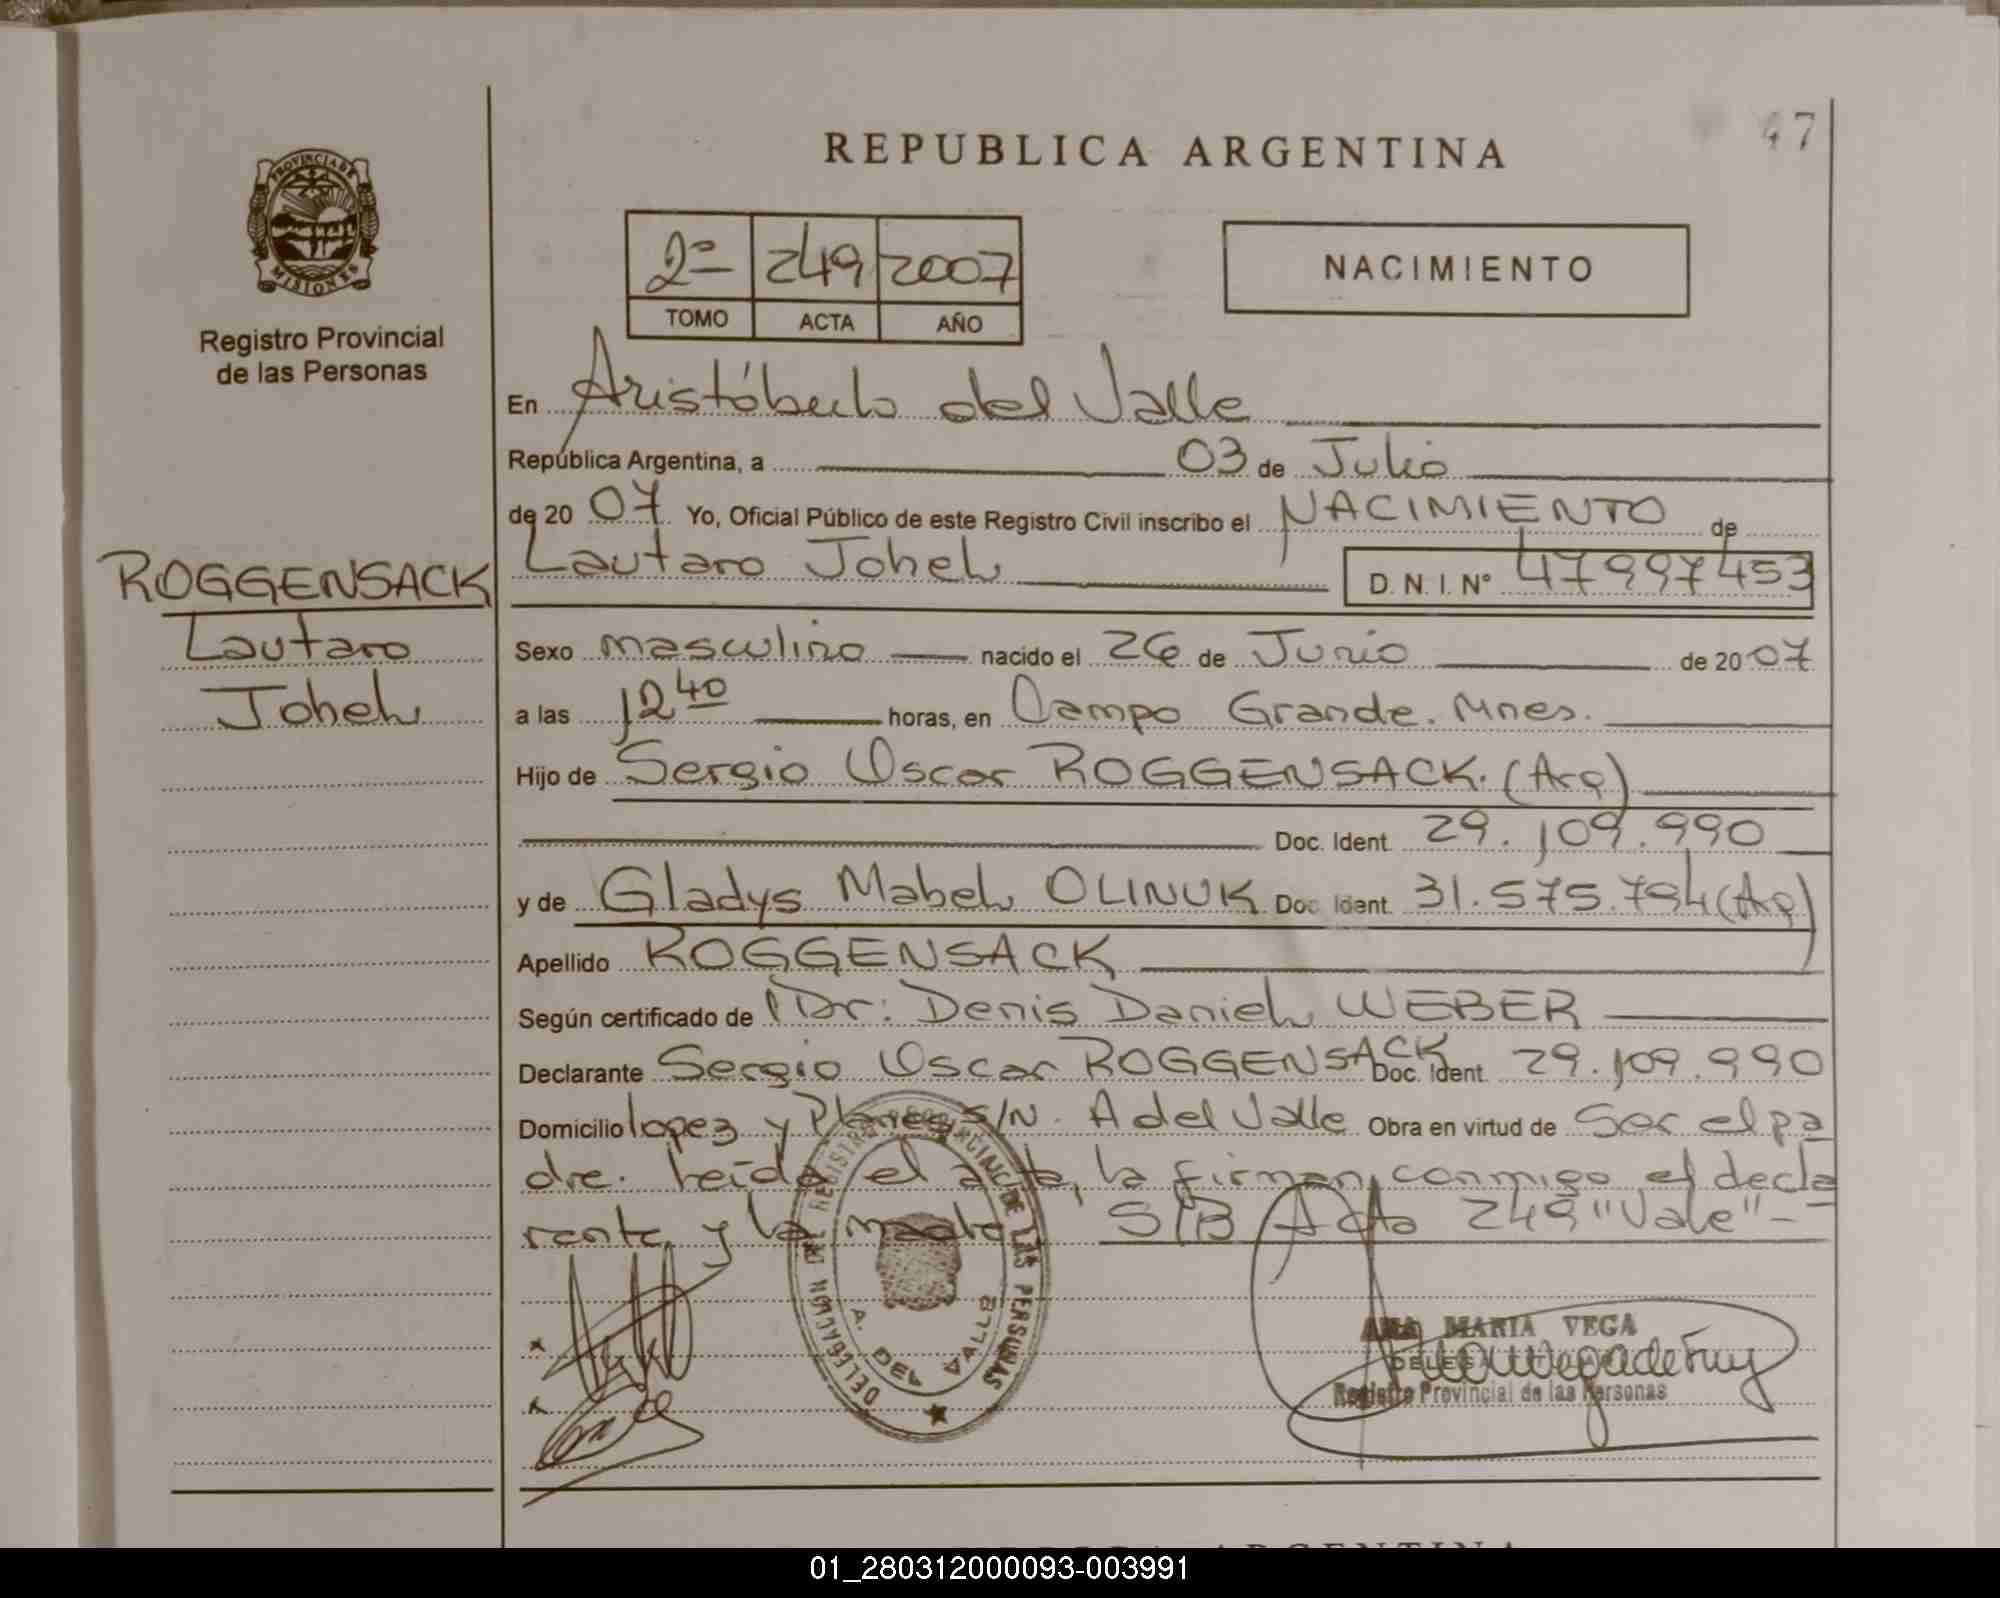 47
REPUBLICA ARGENTINA
PROVINCIA DE
MISIONES
Registro Provincial
de las Personas
2º 249 2007
TOMO ACTA AÑO
NACIMIENTO
En Aristóbulo del Valle
República Argentina, a 03 de Julio
de 20 07 Yo, Oficial Público de este Registro Civil inscribo el NACIMIENTO de
ROGGENSACK
Lautaro
Johel
Lautaro Johel D. N. I. Nº 47997453
Sexo masculino nacido el 26 de Junio de 20 07
a las 12 40 horas, en Campo Grande. Mnes.
Hijo de Sergio Oscar ROGGENSACK. (Arg)
Doc. Ident. 29.109.990
y de Gladys Mabel OLINUK Doc. Ident. 31.575.794 (Arg)
Apellido ROGGENSACK
Según certificado de Dr: Denis Daniel WEBER
Declarante Sergio Oscar ROGGENSACK Doc. Ident. 29.109.990
Domicilio Lopez y Planes S/N. A del Valle Obra en virtud de Ser el pa
dre. Leida el acta, la firman conmigo el decla
rante y la madre S/B Acta 249 "Vale" -
DELEGACION DEL REGISTRO PROVINCIAL DE LAS PERSONAS
A. DEL VALLE
ANA MARIA VEGA
Registro Provincial de las Personas
REPUBLICA ARGENTINA
01_280312000093-003991